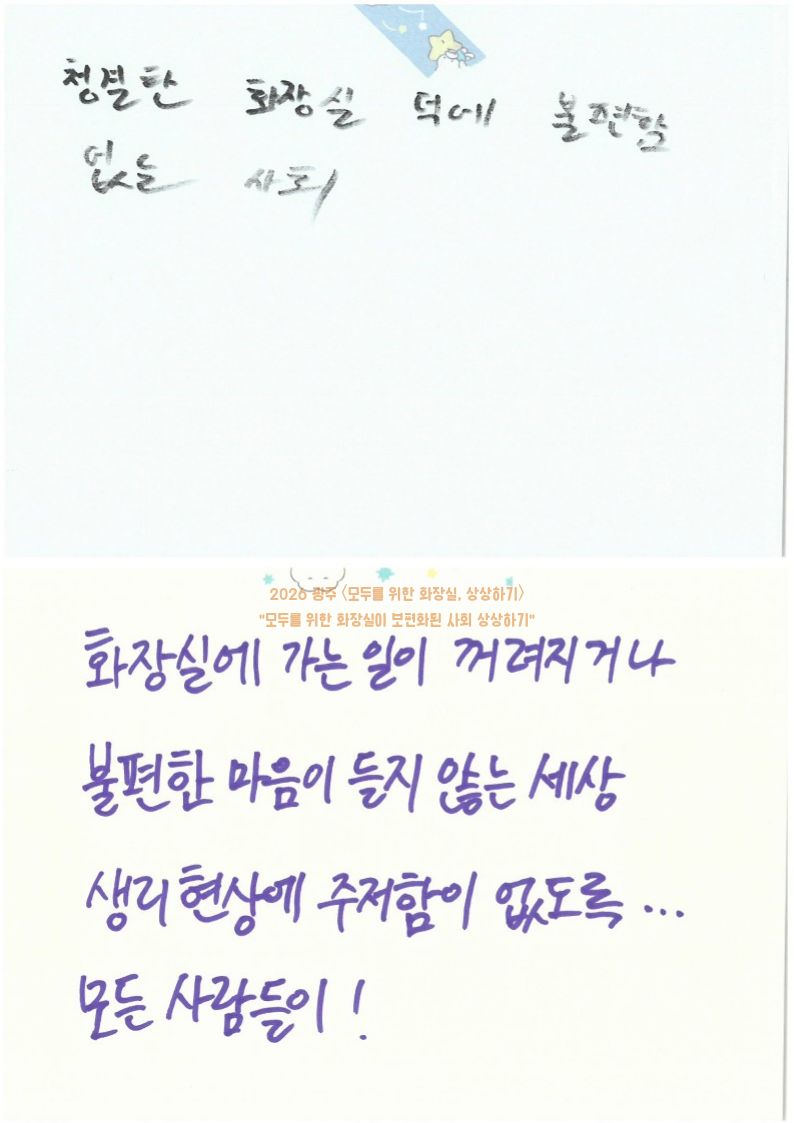 청결한 화장실 덕에 불편함
없는 사회
2026 광주 <모두를 위한 화장실, 상상하기>
"모두를 위한 화장실이 보편화된 사회 상상하기"
화장실에 가는 일이 꺼려지거나
불편한 마음이 들지 않는 세상
생리현상에 주저함이 없도록...
모든 사람들이!